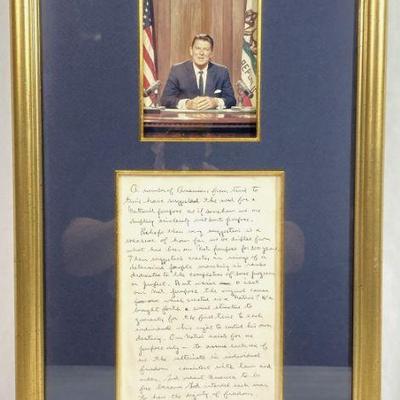 A number of Americans from time to
time have suggested the need for a
National purpose as if somehow we are
drifting aimlessly without purpose.
Perhaps their very suggestion is a
measure of how far we've drifted from
what has been our Nat. purpose for 200 years
Their suggestion creates an image of a
determined people marching in ranks
dedicated to the completion of some program
or project. But wasn't
our Nat. purpose the original cause
for which created us a "Nation"? We
brought forth a
guarantee for the first time to each
individual his right to control his own
destiny. Our Nation exists for one
purpose only — to assure each one of
us the ultimate in individual
freedom consistent with law and
order. God meant America to be
free because God intended each man
to have the dignity of freedom.